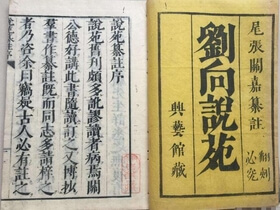 尾張關嘉纂註
翻刻必究
劉向說苑
興藝館藏
說苑纂註序
說苑舊刊頗多訛謬讀者病焉關
公德好講此書隨讀訂之又博抄
羣書作纂註既而同志多請梓之
者乃咨余曰竊疑古人必有註之